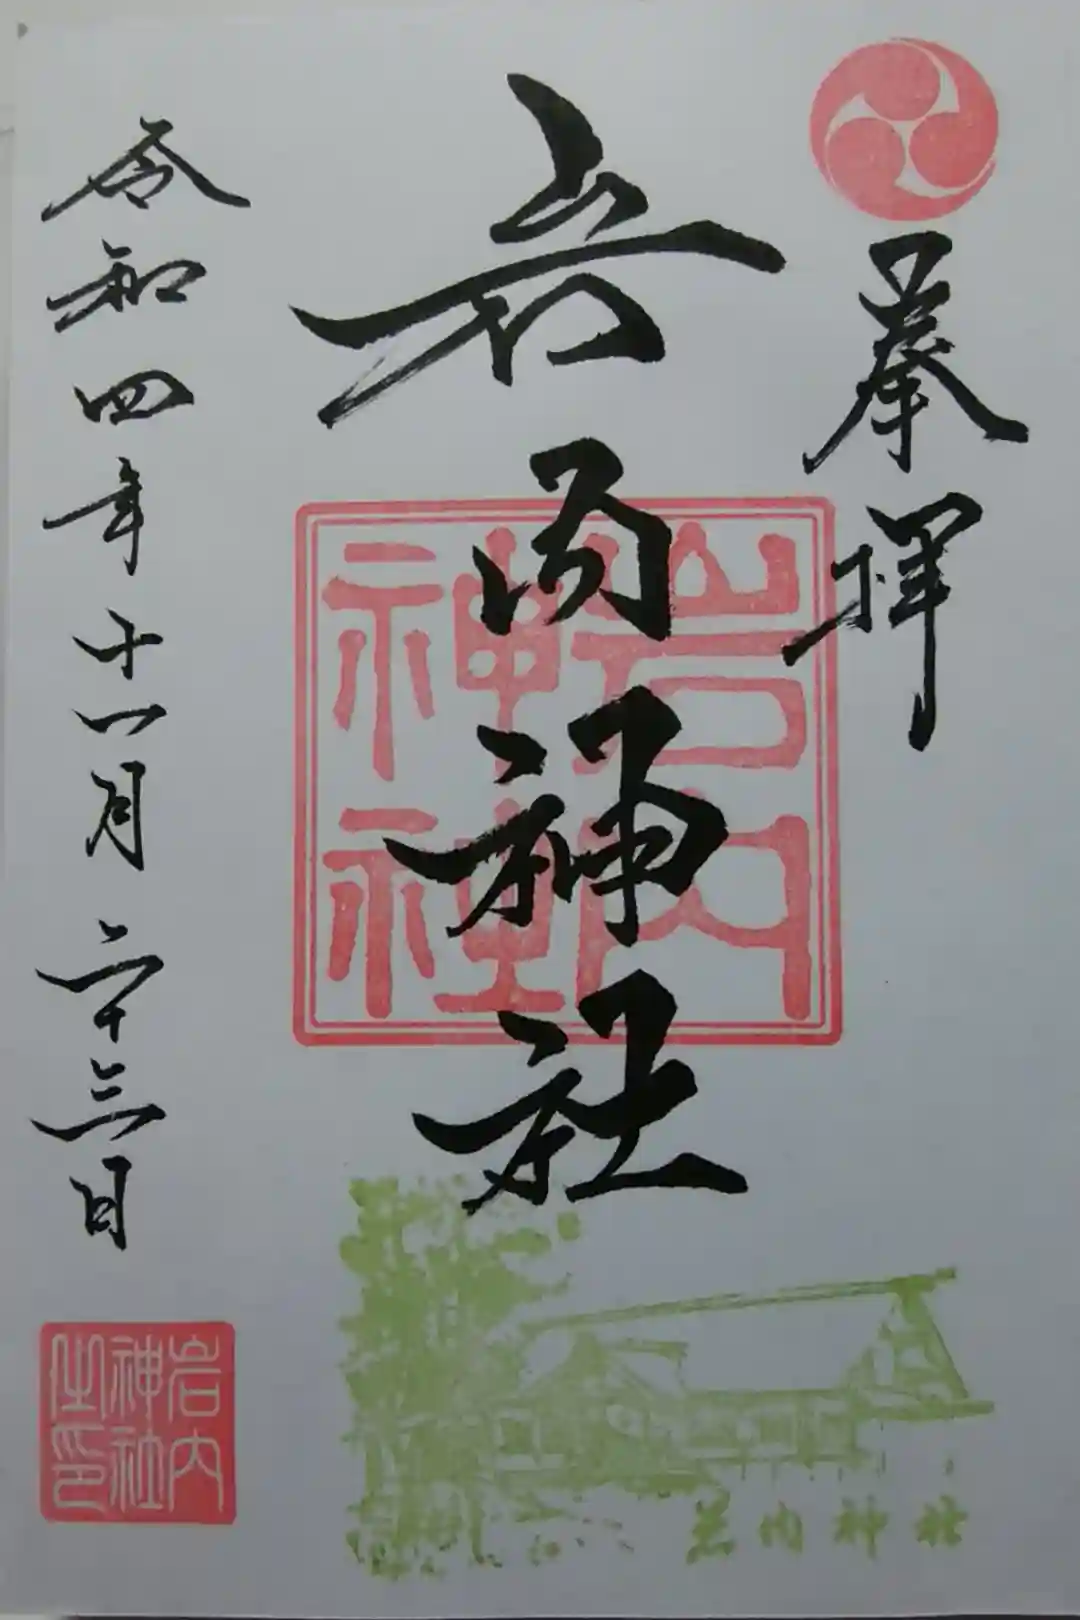 奉拝
岩内神社
岩内
神社
令和四年十一月二十三日
岩内
神社
之印
岩内神社